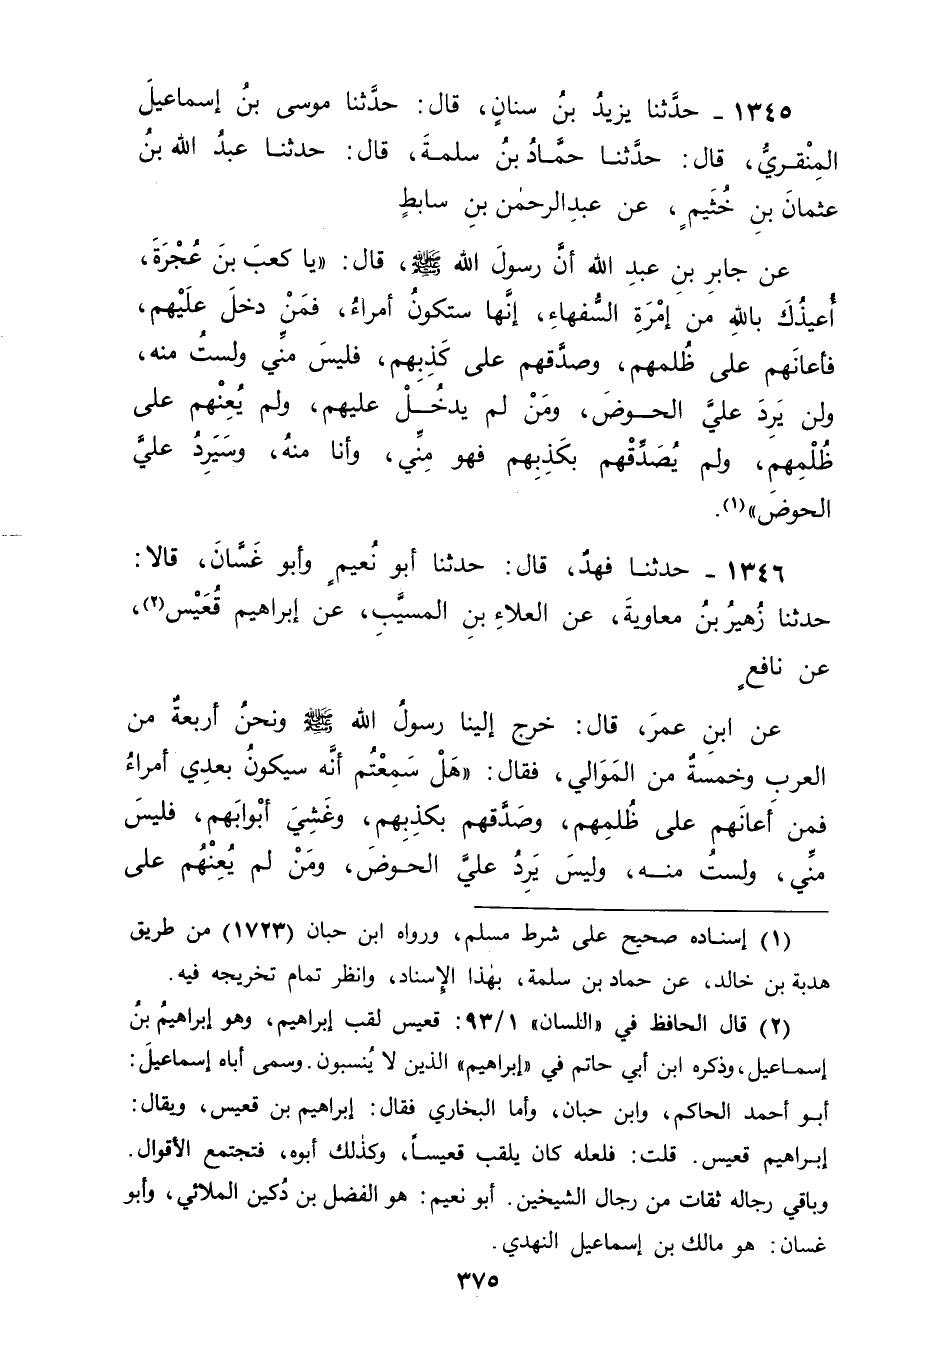 ١٣٤٥ ـ حدَّثنا يزيدُ بنُ سنانٍ، قال: حدَّثنا موسى بنُ إسماعيلَ
المِنْقريُّ، قال: حدَّثنا حمَّادُ بنُ سلمةَ، قال: حدثنا عبدُ الله بنُ
عثمانَ بنِ خُثَيمٍ، عن عبدِالرحمٰن بنِ سابطٍ
عن جابرِ بنِ عبدِ الله أنَّ رسولَ الله ﷺ، قال: «يا كعبَ بنَ عُجْرَةَ،
أُعيذُكَ باللهِ من إمْرَةِ السُّفهاءِ، إنَّها ستكونُ أمراءُ، فمَنْ دخلَ علَيْهم،
فأعانَهم على ظُلمهم، وصدَّقهم على كَذِبهم، فليسَ منِّي ولستُ منه،
ولن يَرِدَ عليَّ الحوضَ، ومَنْ لم يدخُلْ عليهم، ولم يُعِنْهم على
ظُلْمِهم، ولم يُصَدِّقْهم بكَذِبِهم فهو مِنِّي، وأنا منهُ، وسَيَرِدُ عليَّ
الحوضَ»(١).
١٣٤٦ ـ حدثنا فهدٌ، قال: حدثنا أبو نُعيمٍ وأبو غَسَّانَ، قالا:
حدثنا زُهيرُ بنُ معاويةَ، عن العلاءِ بنِ المسيَّبِ، عن إبراهيم قُعَيْس(٢)،
عن نافعٍ
عن ابنِ عمرَ، قال: خرج إلينا رسولُ الله ﷺ ونحنُ أربعةٌ من
العربِ وخمسةٌ من المَوَالي، فقال: «هَلْ سَمِعْتُم أنَّه سيكونُ بعدِي أمراءُ
فمن أعانَهم على ظُلمِهم، وصَدَّقهم بكذِبهم، وغَشِيَ أبْوابَهم، فليسَ
منِّي، ولستُ منه، وليسَ يَرِدُ عليَّ الحوضَ، ومَنْ لم يُعِنْهُم على
(١) إسناده صحيح على شرط مسلم، ورواه ابن حبان (١٧٢٣) من طريق
هدبة بن خالد، عن حماد بن سلمة، بهٰذا الإسناد، وانظر تمام تخريجه فيه.
(٢) قال الحافظ في «اللسان» ٩٣/١: قعيس لقب إبراهيم، وهو إبراهيمُ بنُ
إسماعيل، وذكره ابن أبي حاتم في «إبراهيم» الذين لا يُنسبون. وسمى أباه إسماعيلَ:
أبو أحمد الحاكم، وابن حبان، وأما البخاري فقال: إبراهيم بن قعيس، ويقال:
إبراهيم قعيس. قلت: فلعله كان يلقب قعيساً، وكذٰلك أبوه، فتجتمع الأقوال.
وباقي رجاله ثقات من رجال الشيخين. أبو نعيم: هو الفضل بن دُكين الملائي، وأبو
غسان: هو مالك بن إسماعيل النهدي.
٣٧٥